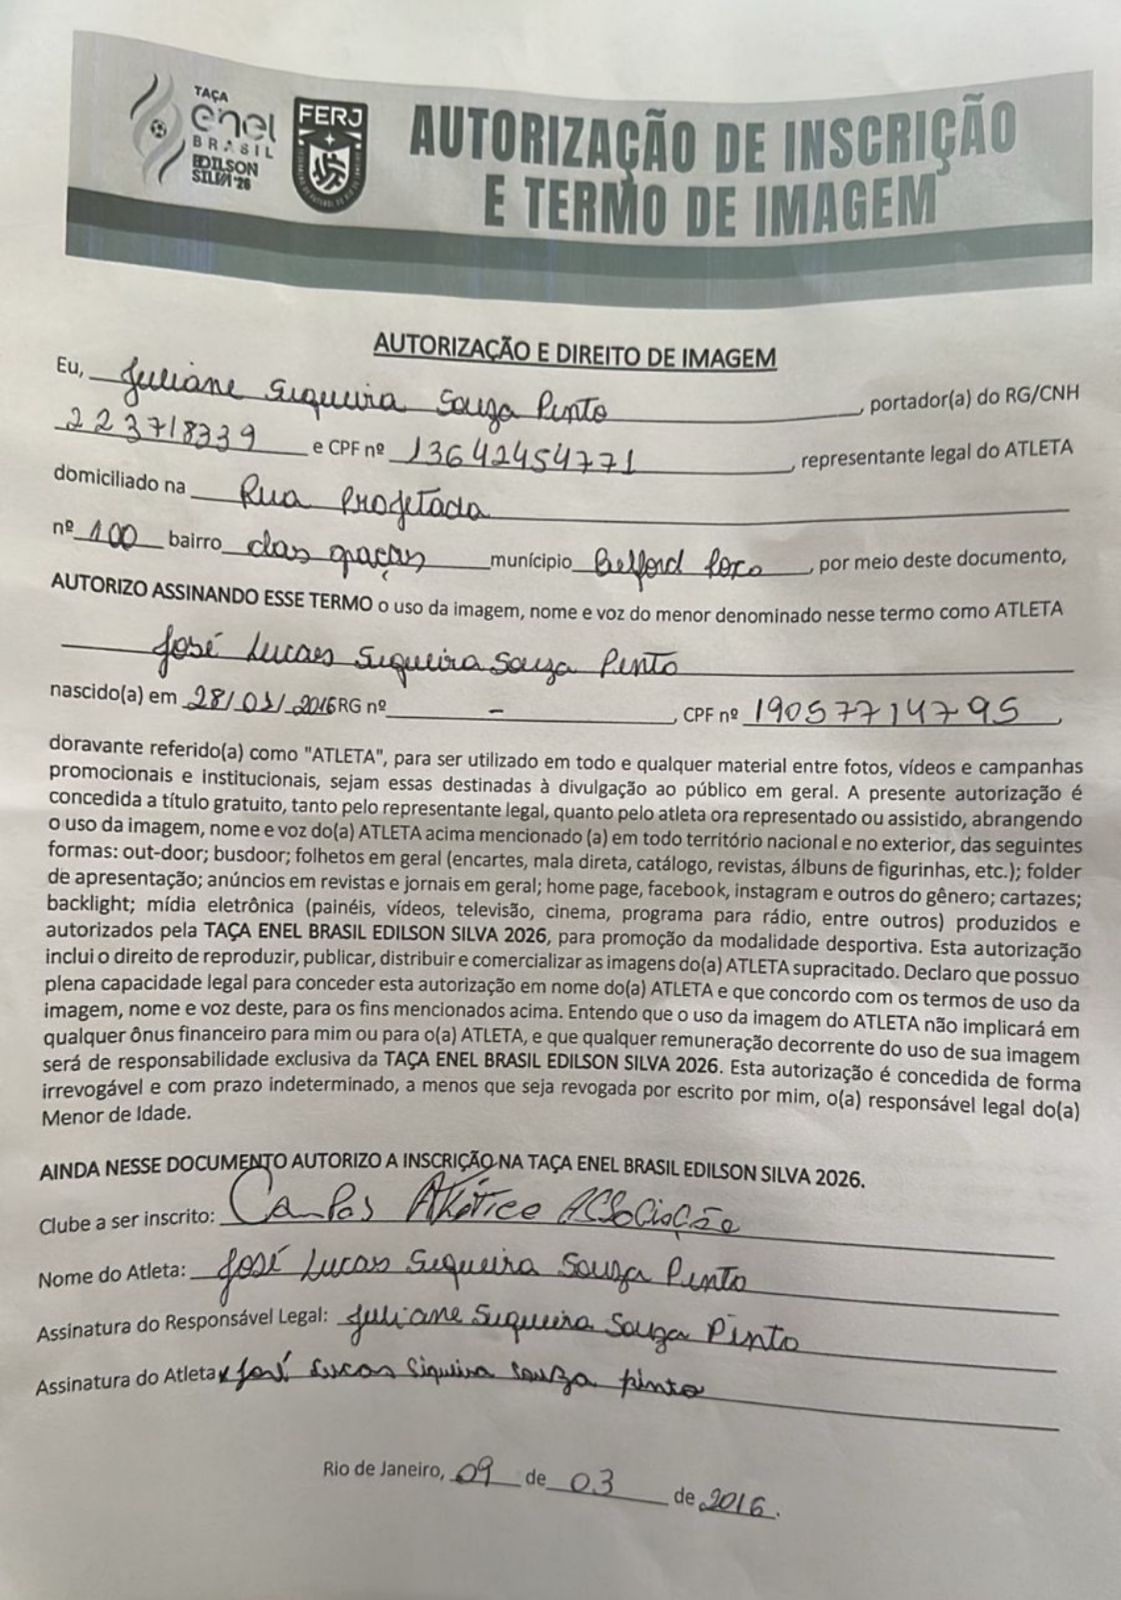 TAÇA
enel
BRASIL
EDILSON
SILVA '26
FERJ
AUTORIZAÇÃO DE INSCRIÇÃO
E TERMO DE IMAGEM
AUTORIZAÇÃO E DIREITO DE IMAGEM
Eu, Juliane Siqueira Souza Pinto, portador(a) do RG/CNH
223718339 e CPF nº 13642454771, representante legal do ATLETA
domiciliado na Rua Projetada
nº 100 bairro das graças município Belford Roxo, por meio deste documento,
AUTORIZO ASSINANDO ESSE TERMO o uso da imagem, nome e voz do menor denominado nesse termo como ATLETA
José Lucas Siqueira Souza Pinto
nascido(a) em 28/01/2016 RG nº -, CPF nº 19057714795,
doravante referido(a) como "ATLETA", para ser utilizado em todo e qualquer material entre fotos, vídeos e campanhas
promocionais e institucionais, sejam essas destinadas à divulgação ao público em geral. A presente autorização é
concedida a título gratuito, tanto pelo representante legal, quanto pelo atleta ora representado ou assistido, abrangendo
o uso da imagem, nome e voz do(a) ATLETA acima mencionado (a) em todo território nacional e no exterior, das seguintes
formas: out-door; busdoor; folhetos em geral (encartes, mala direta, catálogo, revistas, álbuns de figurinhas, etc.); folder
de apresentação; anúncios em revistas e jornais em geral; home page, facebook, instagram e outros do gênero; cartazes;
backlight; mídia eletrônica (painéis, vídeos, televisão, cinema, programa para rádio, entre outros) produzidos e
autorizados pela TAÇA ENEL BRASIL EDILSON SILVA 2026, para promoção da modalidade desportiva. Esta autorização
inclui o direito de reproduzir, publicar, distribuir e comercializar as imagens do(a) ATLETA supracitado. Declaro que possuo
plena capacidade legal para conceder esta autorização em nome do(a) ATLETA e que concordo com os termos de uso da
imagem, nome e voz deste, para os fins mencionados acima. Entendo que o uso da imagem do ATLETA não implicará em
qualquer ônus financeiro para mim ou para o(a) ATLETA, e que qualquer remuneração decorrente do uso de sua imagem
será de responsabilidade exclusiva da TAÇA ENEL BRASIL EDILSON SILVA 2026. Esta autorização é concedida de forma
irrevogável e com prazo indeterminado, a menos que seja revogada por escrito por mim, o(a) responsável legal do(a)
Menor de Idade.
AINDA NESSE DOCUMENTO AUTORIZO A INSCRIÇÃO NA TAÇA ENEL BRASIL EDILSON SILVA 2026.
Clube a ser inscrito: Campos Atlético ASSociação
Nome do Atleta: José Lucas Siqueira Souza Pinto
Assinatura do Responsável Legal: Juliane Siqueira Souza Pinto
Assinatura do Atleta x José Lucas Siqueira Souza pinto
Rio de Janeiro, 09 de 03 de 2016.